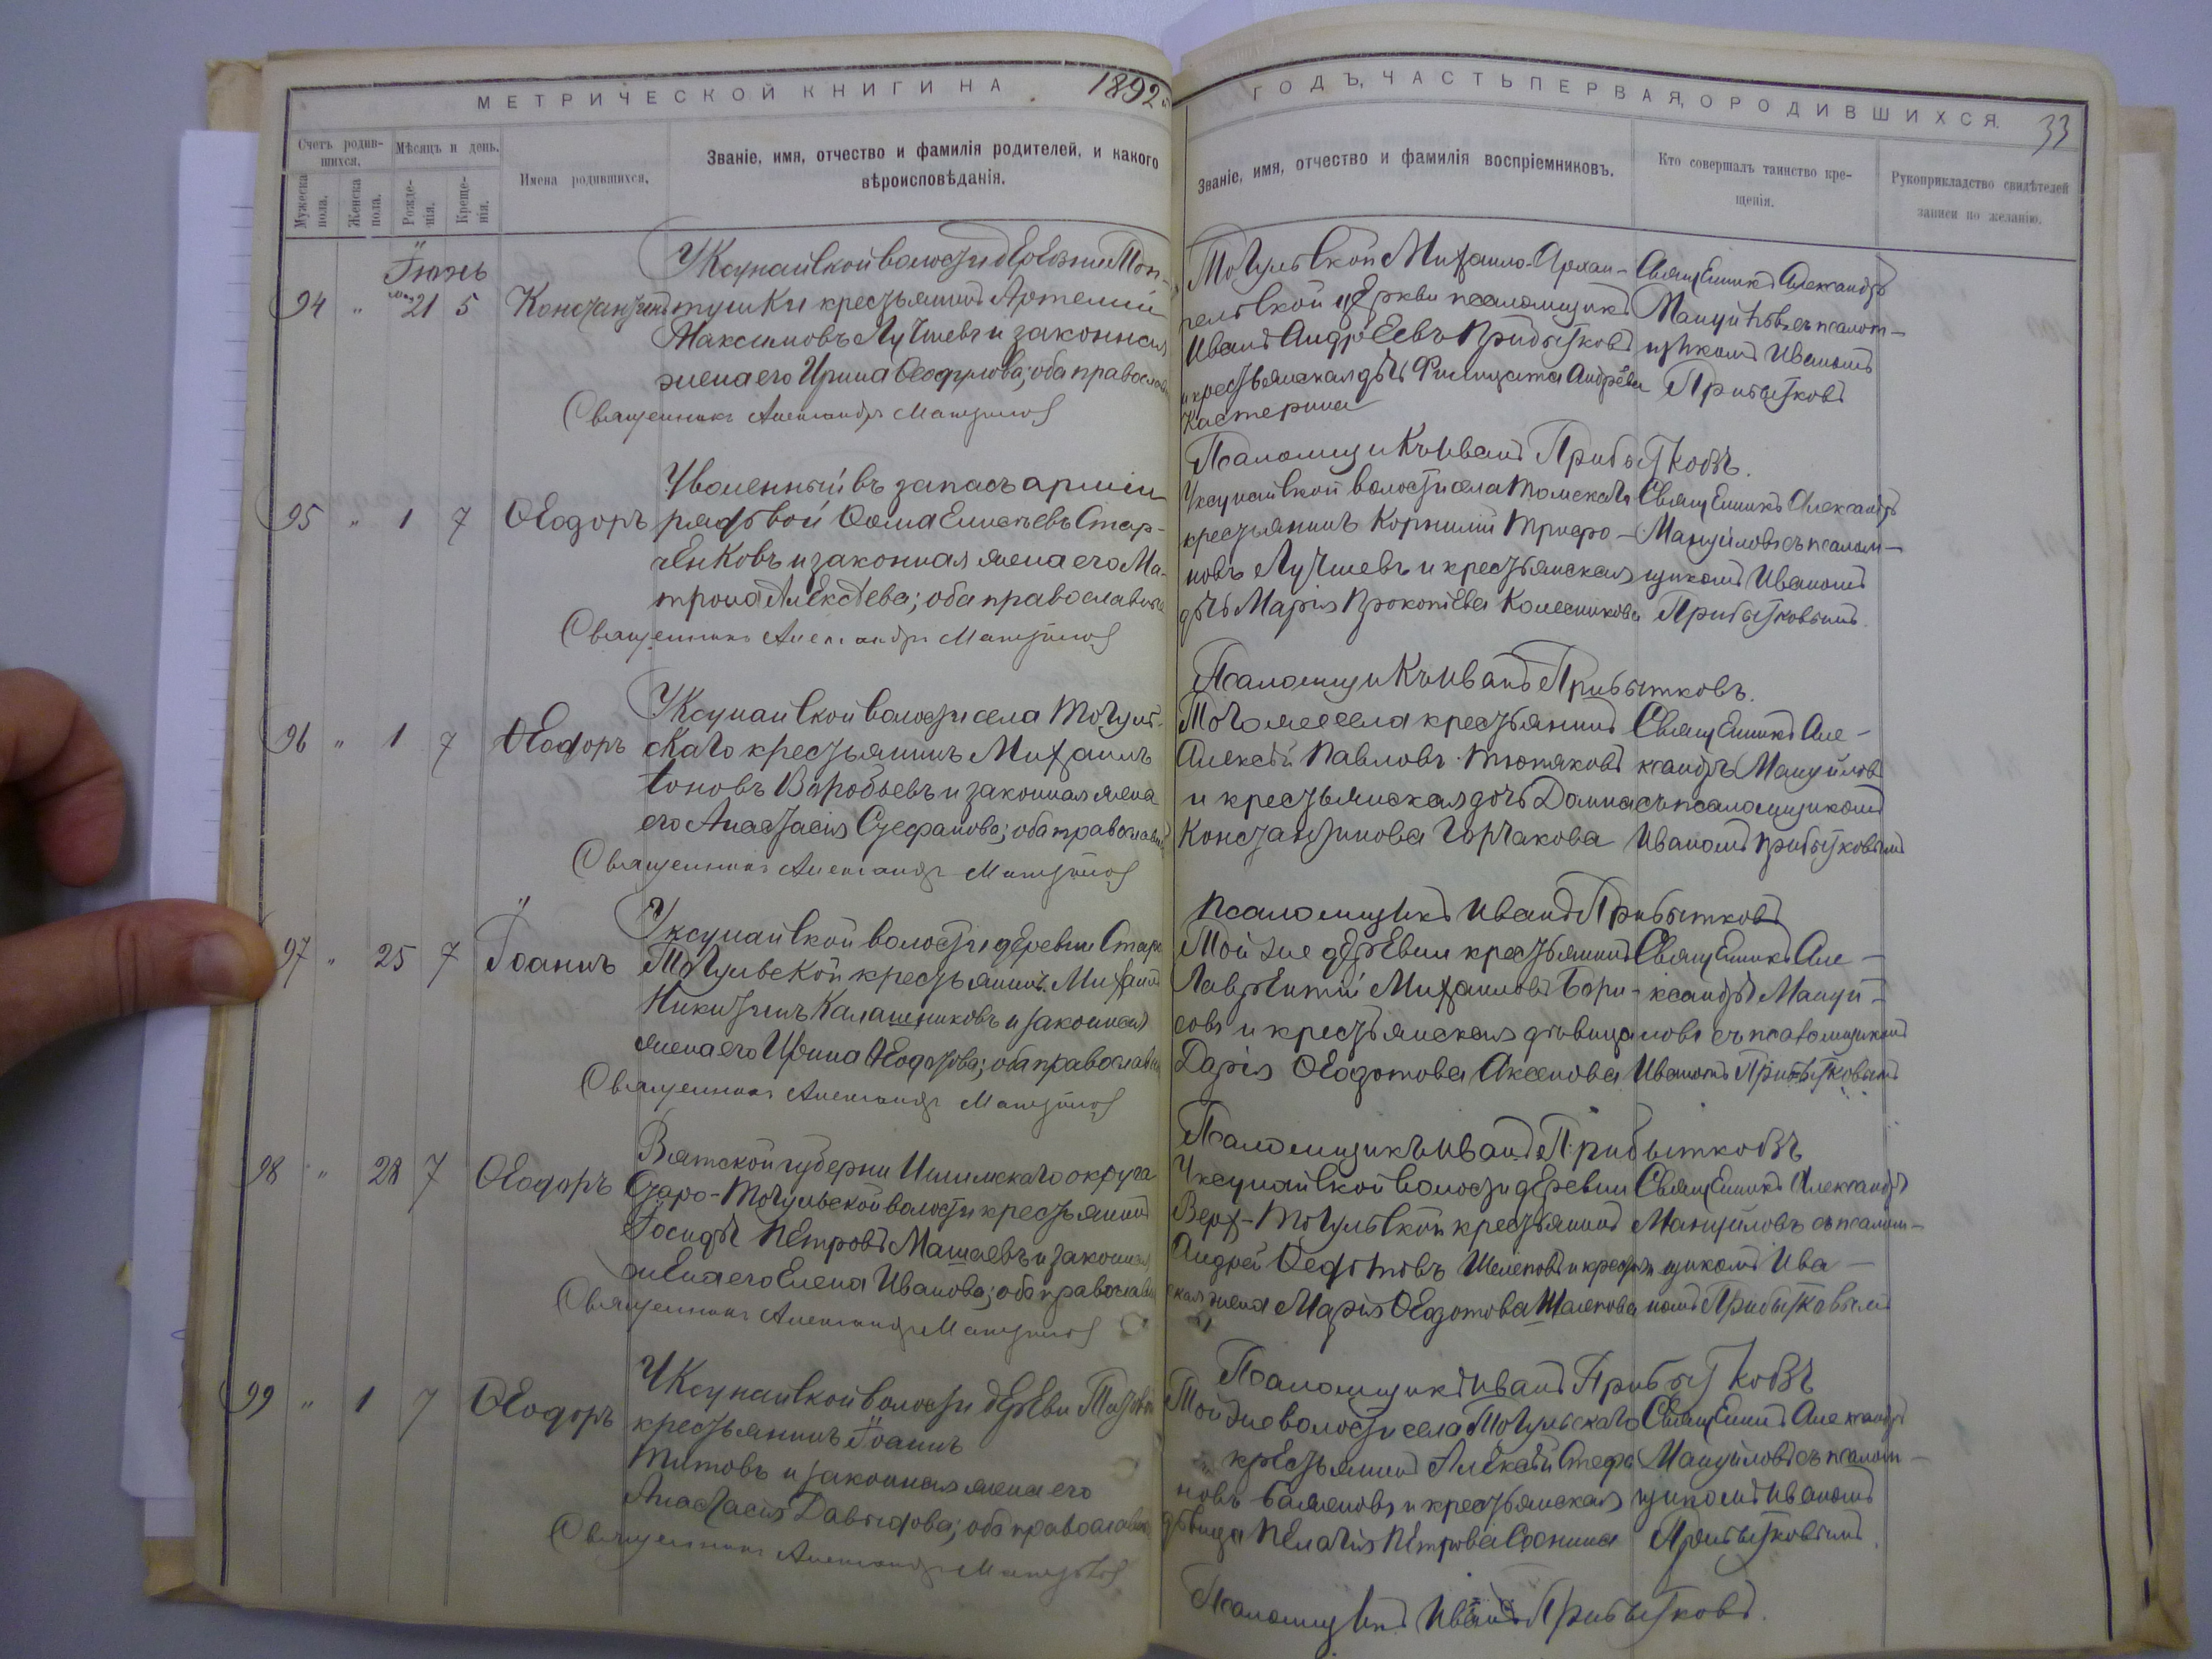 МЕТРИЧЕСКОЙ КНИГИ НА 1892
Счетъ родившихся.
Мужеска пола.
Женска пола.
Мѣсяцъ и день.
Рожденія.
Крещенія.
Имена родившихся.
Званіе, имя, отчество и фамилія родителей, и какого
вѣроисповѣданія.
Іюнь
94 " 21 5 Константинъ
Уксунайской волости деревни
тушки крестьянинъ Артемій
Максимовъ Лучшевъ и законная
жена его Ирина; оба православные
Священникъ Александръ Мануйловъ
95 " 1 7 Ѳеодоръ
Уволенный въ запасъ арміи
рядовой Ѳома Елисѣевъ Стар-
ченковъ и законная жена его Ма-
трона Алексѣева; оба православные
Священникъ Александръ Мануйловъ
96 " 1 7 Ѳеодоръ
Уксунайской волости села Тогуль-
скаго крестьянинъ Михаилъ
Іоновъ Воробьевъ и законная жена
его Анастасія Стефанова; оба православные
Священникъ Александръ Мануйловъ
97 " 25 7 Іоаннъ
Уксунайской волости деревни Старо
Тогульской крестьянинъ Михаилъ
Никитинъ Калашниковъ и законная
жена его Ирина; оба православные
Священникъ Александръ Мануйловъ
98 " 28 7 Ѳеодоръ
Вятской губерніи округа
Старо-Тогульской волости крестьянинъ
Петровъ Машаевъ и законная
жена его Елена Иванова; оба православные
Священникъ Александръ Мануйловъ
99 " 1 7 Ѳеодоръ
Уксунайской волости деревни
крестьянинъ Іоаннъ
Титовъ и законная жена его
Анастасія Давыдова; оба православные
Священникъ Александръ Мануйловъ
ГОДЪ, ЧАСТЬ ПЕРВАЯ, О РОДИВШИХСЯ. 33
Званіе, имя, отчество и фамилія воспріемниковъ.
Кто совершалъ таинство кре-
щенія.
Рукоприкладство свидѣтелей
записи по желанію.
Тогульской Михаило-Архан-
гельской церкви псаломщикъ
Иванъ Андреевъ Прибытковъ
и крестьянская дочь Андреева
Кастерина
Священникъ Александръ
Мануйловъ съ псалом-
щикомъ Иваномъ
Прибытковъ
Псаломщикъ Иванъ Прибытковъ.
Уксунайской волости села Томскаго
крестьянинъ Корнилій Трифо-
новъ Лучшевъ и крестьянская
дочь Марія Прокопіева Колесникова
Священникъ Александръ
Мануйловъ съ псалом-
щикомъ Иваномъ
Прибытковымъ.
Псаломщикъ Иванъ Прибытковъ.
Того же села крестьянинъ
Алексѣй Павловъ Тюпяковъ
и крестьянская дочь Домна
Константинова Горчакова
Священникъ Але-
ксандръ Мануйловъ
съ псаломщикомъ
Иваномъ Прибытковымъ
Псаломщикъ Иванъ Прибытковъ
Той же деревни крестьянинъ
Лаврентій Михаиловъ Бори-
совъ и крестьянская дѣвица
Дарія Ѳедотова Аксенова
Священникъ Але-
ксандръ Мануй-
ловъ съ псаломщикомъ
Иваномъ Прибытковымъ
Псаломщикъ Иванъ Прибытковъ
Уксунайской волости деревни
Верх-Тогульской крестьянинъ
Андрей Ѳедотовъ Шелеповъ и крестьян
ская жена Марія Ѳедотова Шалепова
Священникъ Александръ
Мануйловъ съ псалом-
щикомъ Ива-
номъ Прибытковымъ
Псаломщикъ Иванъ Прибытковъ
Той же волости села Тогульскаго
крестьянинъ Алексѣй Стефа
новъ Баженовъ и крестьянская
дѣвица Пелагія Петрова
Священникъ Александръ
Мануйловъ съ псалом-
щикомъ Иваномъ
Прибытковымъ.
Псаломщикъ Иванъ Прибытковъ.